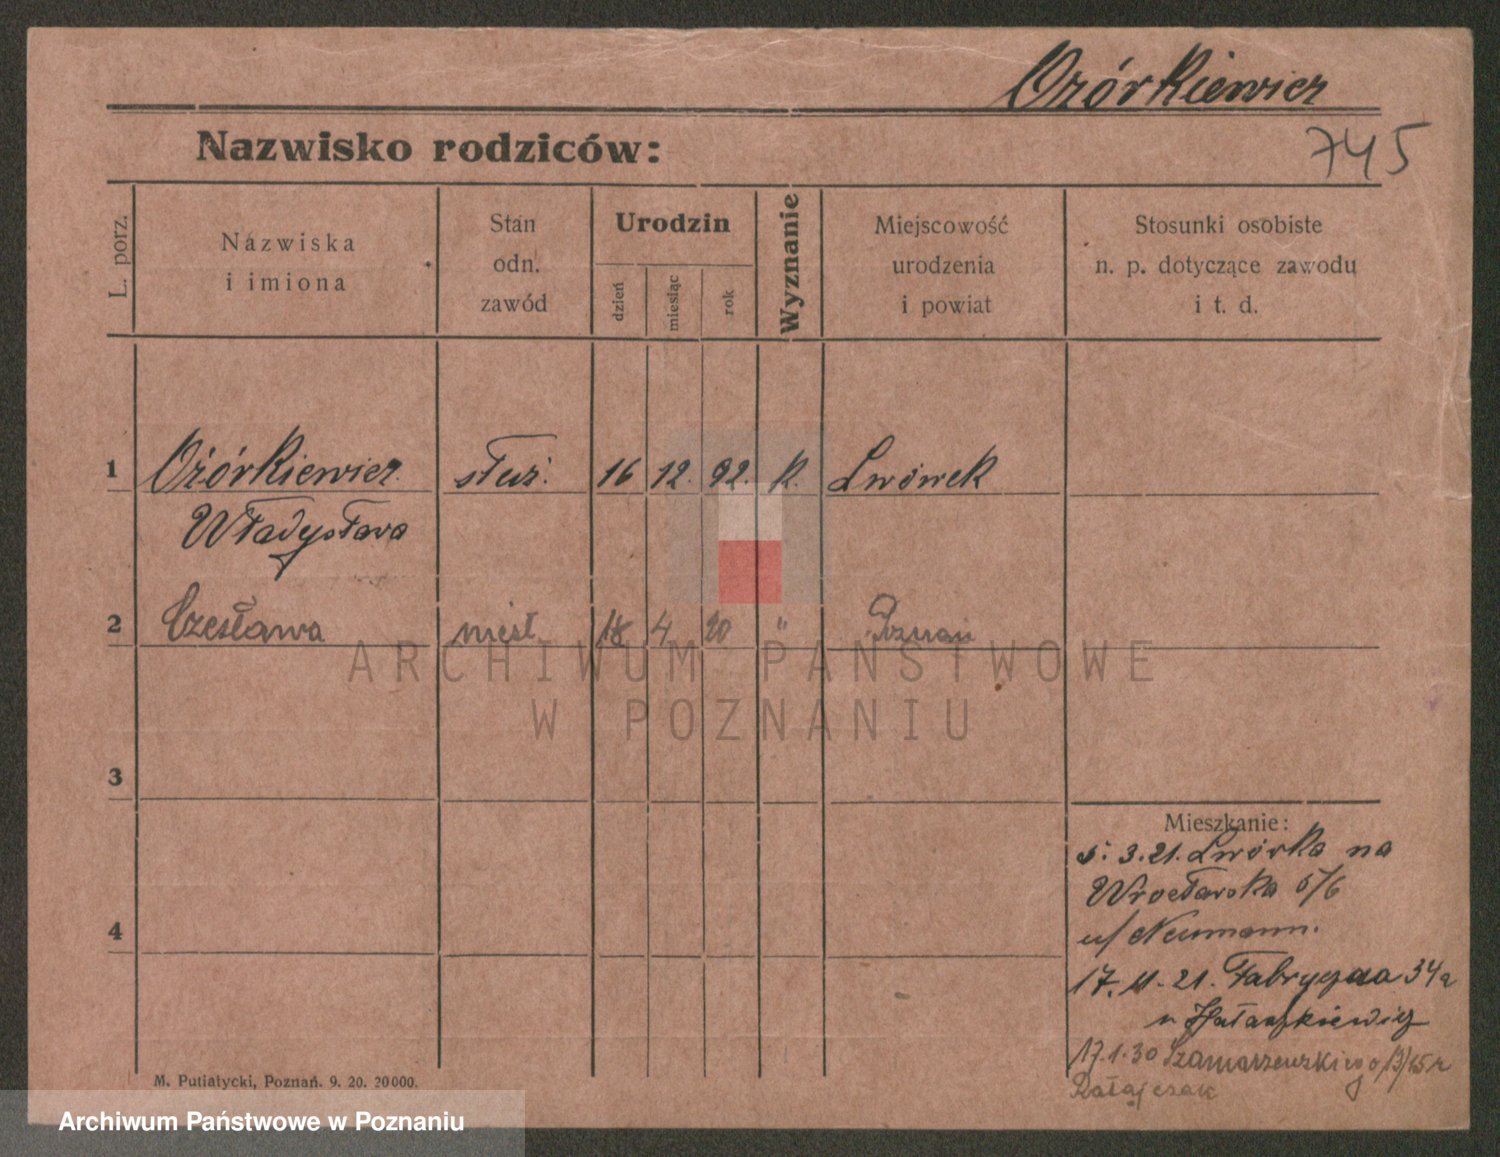 Ozórkiewicz
745
Nazwisko rodziców:
L. porz.
Nazwiska
i imiona
Stan
odn.
zawód
Urodzin
dzień
miesiąc
rok
Wyznanie
Miejscowość
urodzenia
i powiat
Stosunki osobiste
n. p. dotyczące zawodu
i t. d.
1 Ozórkiewicz służ. 16 12. 92. k. Lwówek
Władysława
2 Czesława niesl. 18 4 20 " Poznań
3
4
Mieszkanie:
5. 3. 21. Lwówka na
Wrocławska 5/6
u/ Neumann.
17. 11. 21. Fabryczna 34a
u
17.1.30 Szamarzewskiego 13/15
Ratajczak
M. Putiatycki, Poznań. 9. 20. 20000.
ARCHIWUM PAŃSTWOWE
W POZNANIU
Archiwum Państwowe w Poznaniu